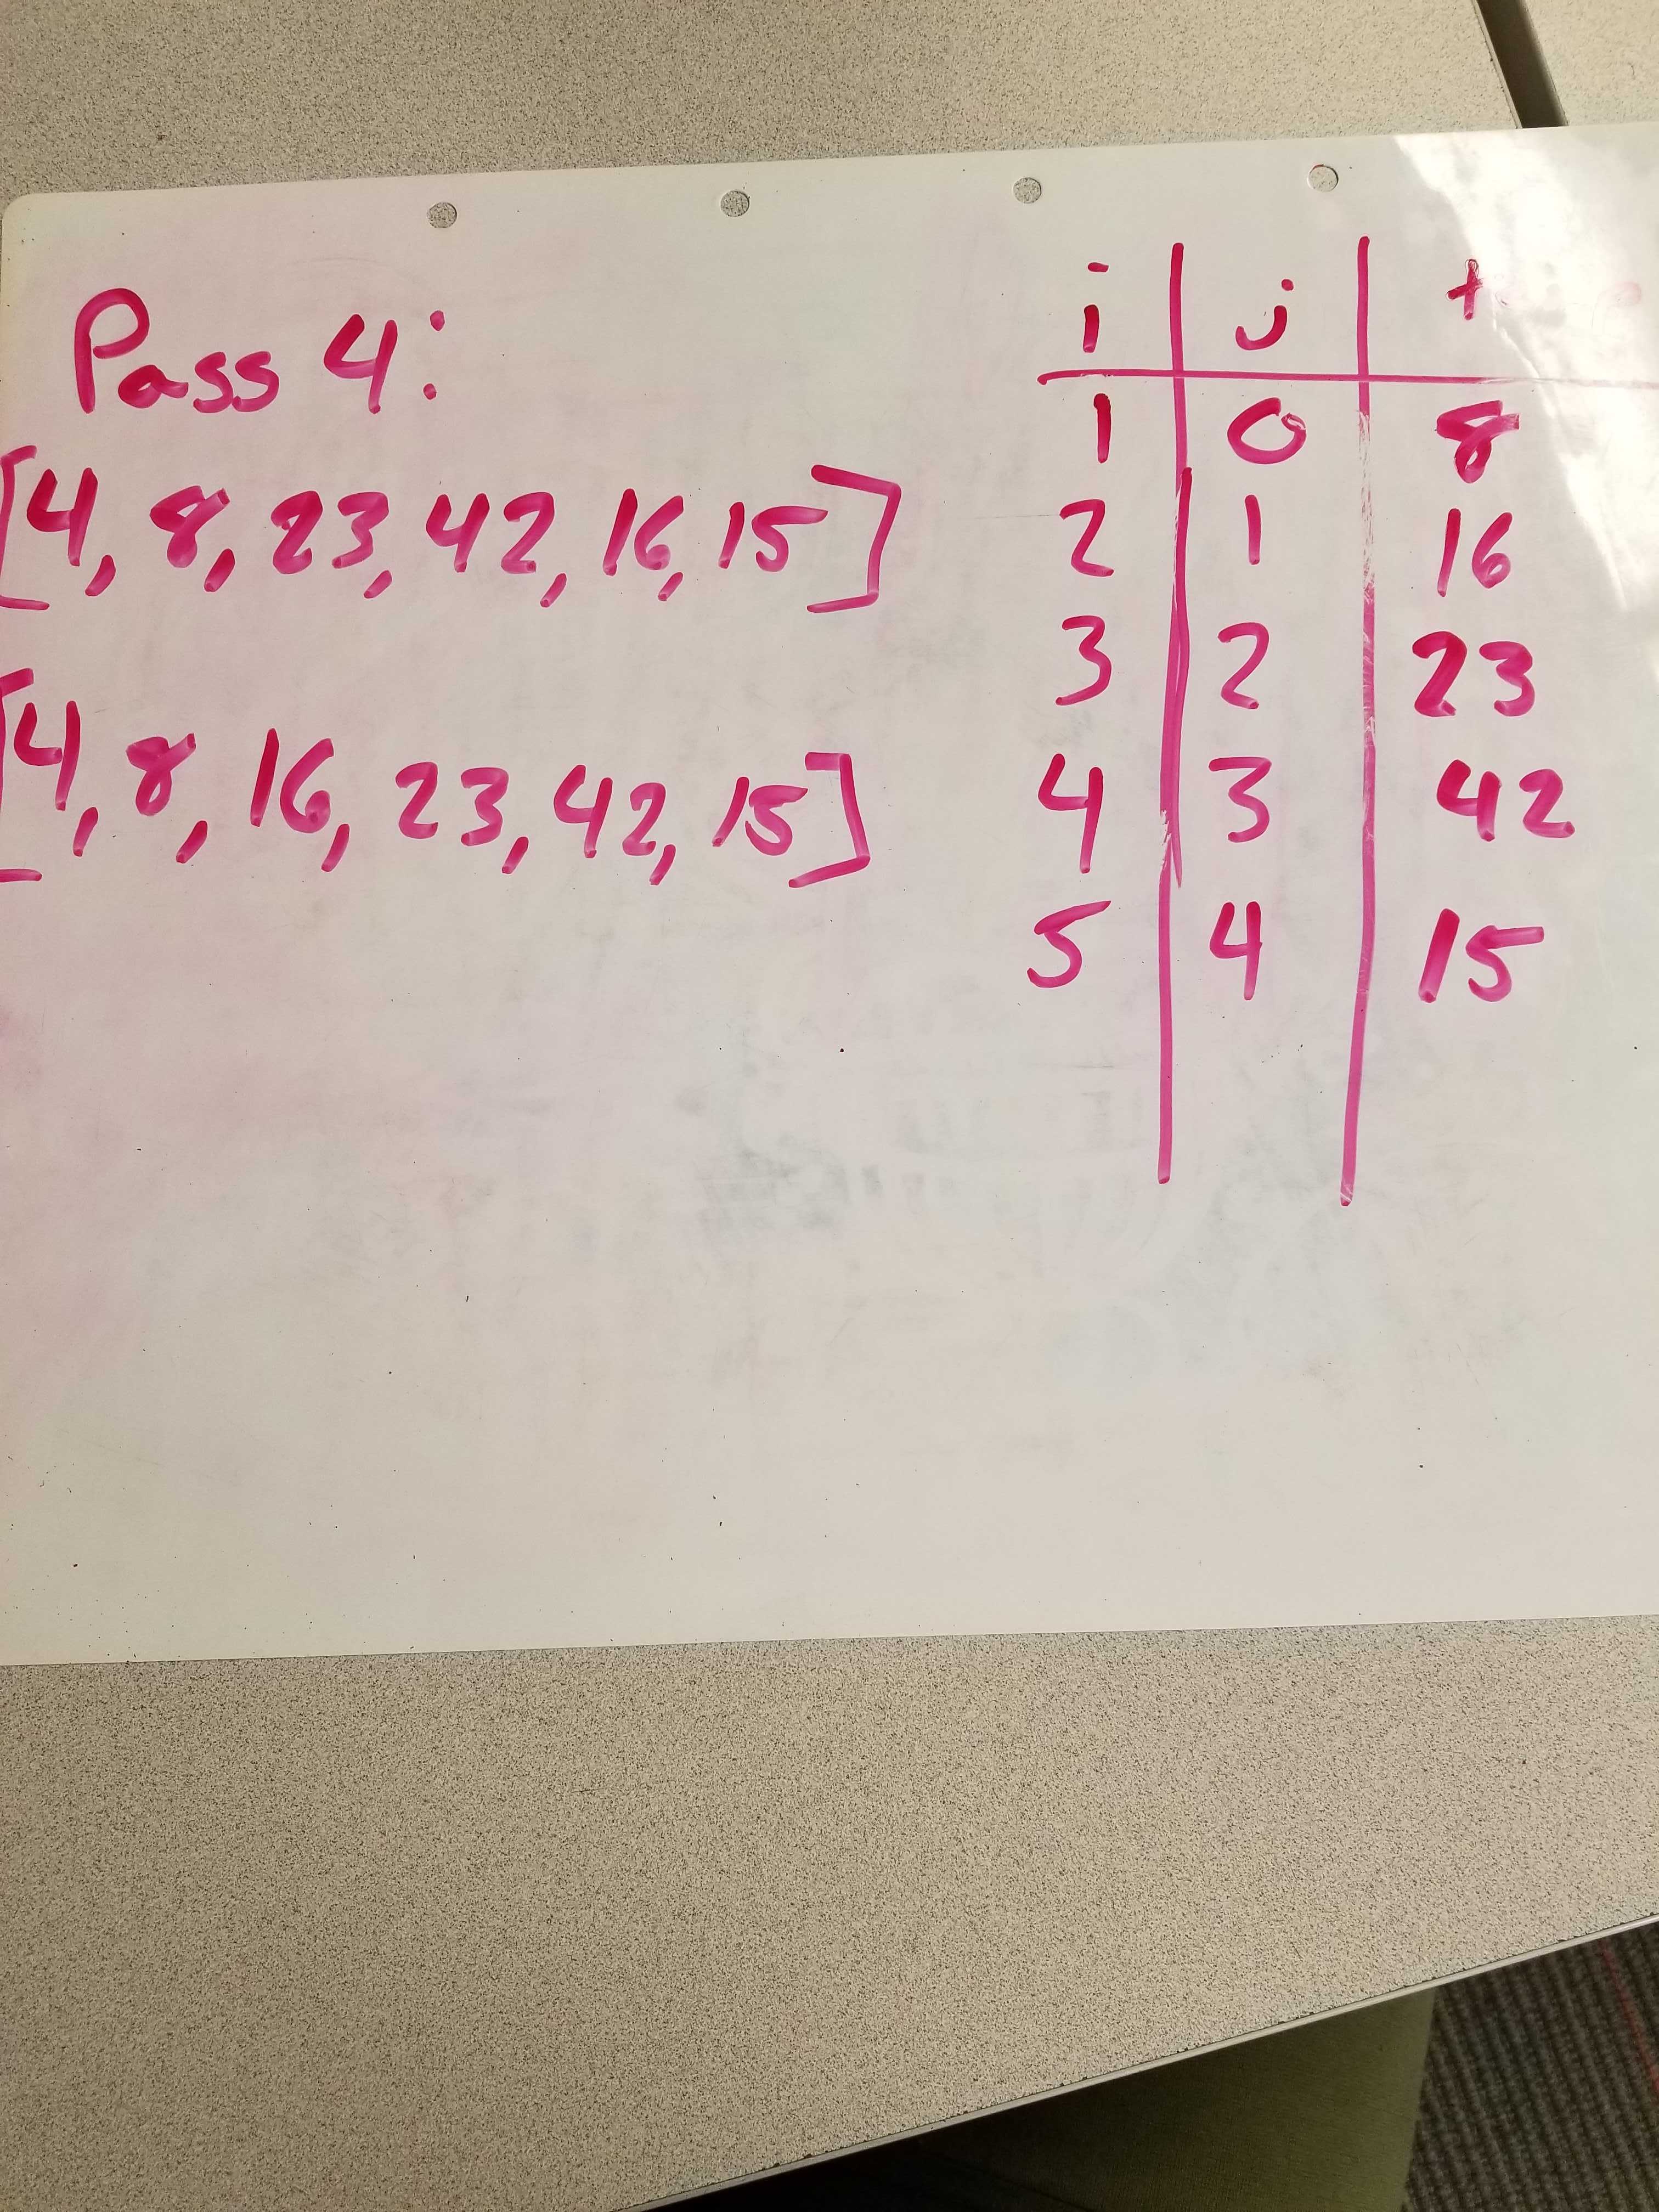 Pass 4:
[4, 8, 23, 42, 16, 15]
[4, 8, 16, 23, 42, 15]
i j t
1 0 8
2 1 16
3 2 23
4 3 42
5 4 15